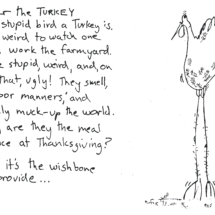 r the TURKEY
stupid bird a Turkey is.
weird to watch one
work the farmyard.
e stupid, weird, and, on
that, ugly! They smell,
oor manners, and
ly muck-up the world.
, are they the meal
ce at Thanksgiving?
it's the wishbone
provide...